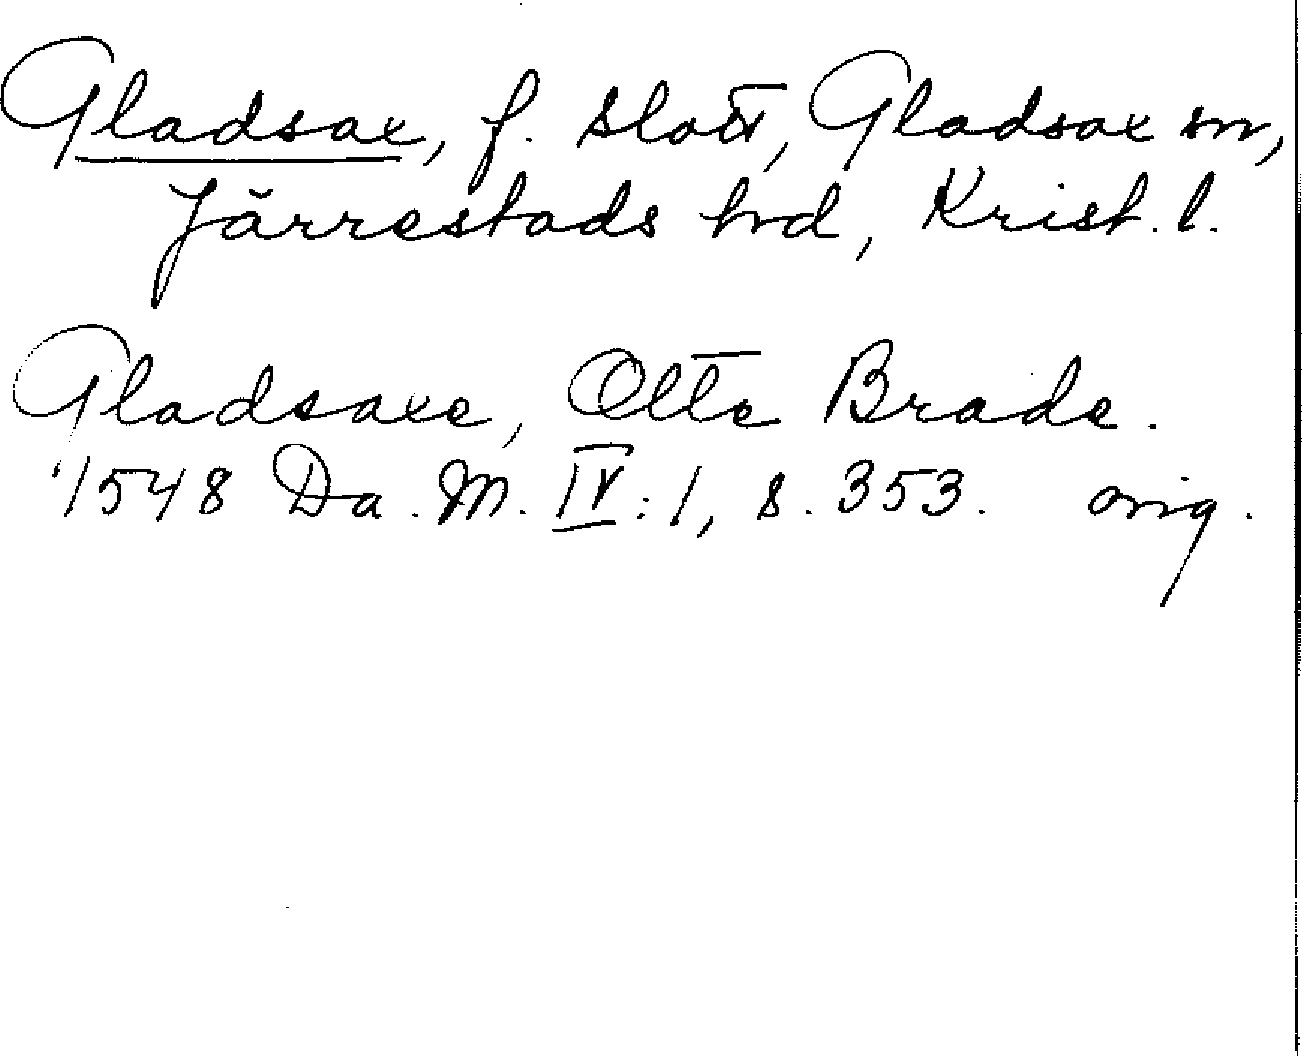 Gladsax, f. slott, Gladsax sn,
Järrestads hrd, Krist. l.
Gladsaxe, Otte Brade.
1548 Da. M. IV: 1, s. 353. orig.